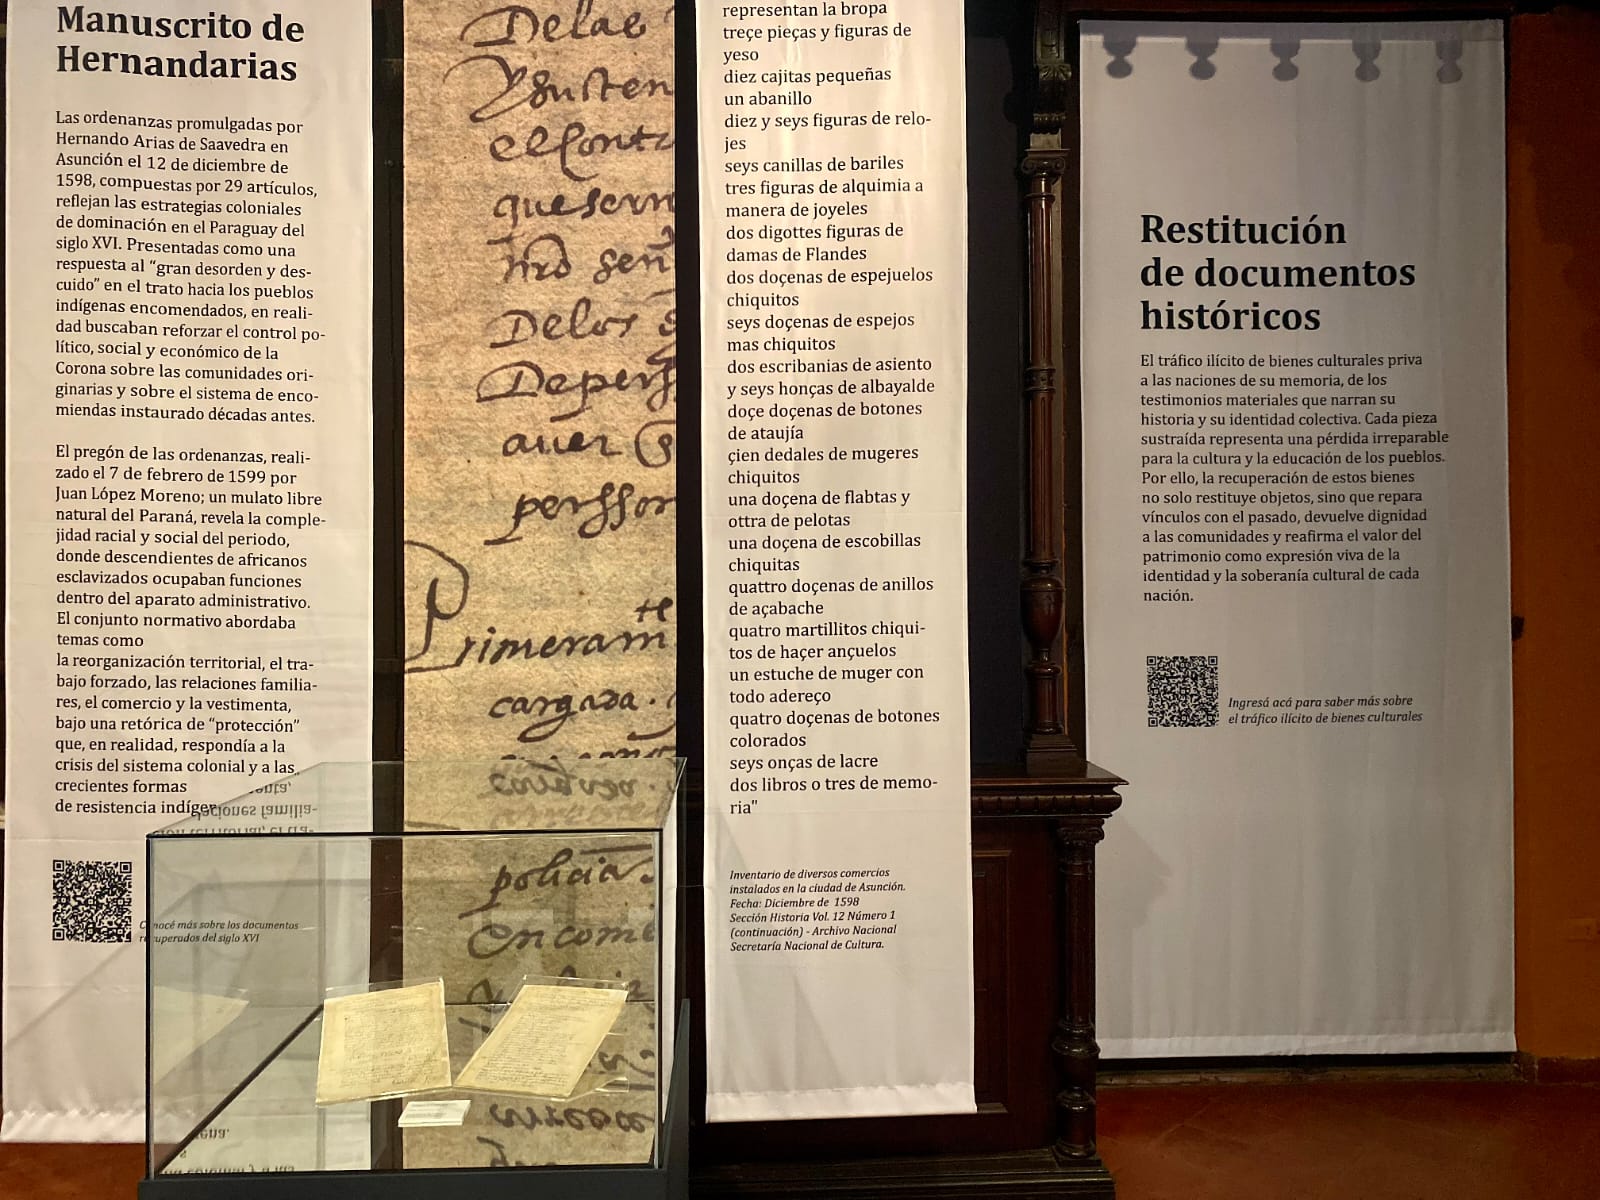 Manuscrito de
Hernandarias
Las ordenanzas promulgadas por
Hernando Arias de Saavedra en
Asunción el 12 de diciembre de
1598, compuestas por 29 artículos,
reflejan las estrategias coloniales
de dominación en el Paraguay del
siglo XVI. Presentadas como una
respuesta al “gran desorden y des-
cuido” en el trato hacia los pueblos
indígenas encomendados, en reali-
dad buscaban reforzar el control po-
lítico, social y económico de la
Corona sobre las comunidades ori-
ginarias y sobre el sistema de enco-
miendas instaurado décadas antes.
El pregón de las ordenanzas, reali-
zado el 7 de febrero de 1599 por
Juan López Moreno; un mulato libre
natural del Paraná, revela la comple-
jidad racial y social del periodo,
donde descendientes de africanos
esclavizados ocupaban funciones
dentro del aparato administrativo.
El conjunto normativo abordaba
temas como
la reorganización territorial, el tra-
bajo forzado, las relaciones familia-
res, el comercio y la vestimenta,
bajo una retórica de “protección”
que, en realidad, respondía a la
crisis del sistema colonial y a las
crecientes formas
de resistencia indíge
Conocé más sobre los documentos
recuperados del siglo XVI
Delas
el conta
que serm
nro señ
Delos
De pers
auer
perssor
Primeramte
cargada.
policia.
encome
representan la bropa
treçe pieças y figuras de
yeso
diez cajitas pequeñas
un abanillo
diez y seys figuras de relo-
jes
seys canillas de bariles
tres figuras de alquimia a
manera de joyeles
dos digottes figuras de
damas de Flandes
dos doçenas de espejuelos
chiquitos
seys doçenas de espejos
mas chiquitos
dos escribanias de asiento
y seys honças de albayalde
doçe doçenas de botones
de ataujía
çien dedales de mugeres
chiquitos
una doçena de flabtas y
ottra de pelotas
una doçena de escobillas
chiquitas
quattro doçenas de anillos
de açabache
quatro martillitos chiqui-
tos de haçer ançuelos
un estuche de muger con
todo adereço
quatro doçenas de botones
colorados
seys onças de lacre
dos libros o tres de memo-
ria"
Inventario de diversos comercios
instalados en la ciudad de Asunción.
Fecha: Diciembre de 1598
Sección Historia Vol. 12 Número 1
(continuación) - Archivo Nacional
Secretaría Nacional de Cultura.
Restitución
de documentos
históricos
El tráfico ilícito de bienes culturales priva
a las naciones de su memoria, de los
testimonios materiales que narran su
historia y su identidad colectiva. Cada pieza
sustraída representa una pérdida irreparable
para la cultura y la educación de los pueblos.
Por ello, la recuperación de estos bienes
no solo restituye objetos, sino que repara
vínculos con el pasado, devuelve dignidad
a las comunidades y reafirma el valor del
patrimonio como expresión viva de la
identidad y la soberanía cultural de cada
nación.
Ingresá acá para saber más sobre
el tráfico ilícito de bienes culturales